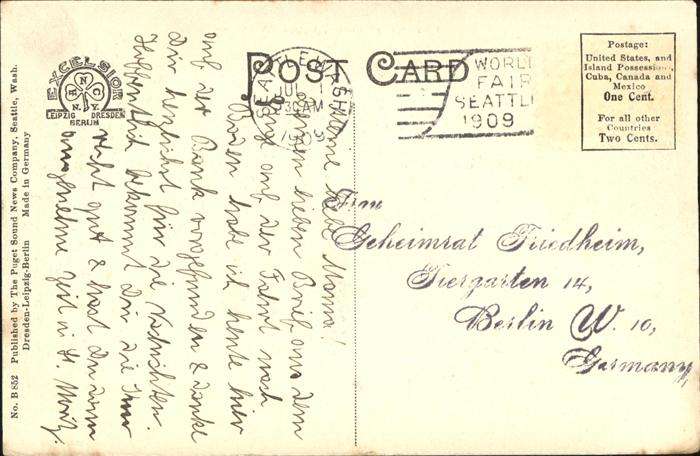 No. B 852 Published by The Puget Sound News Company, Seattle, Wash.
Dresden-Leipzig-Berlin Made in Germany
EXCELSIOR
N. Y.
LEIPZIG DRESDEN
BERLIN
POST CARD
SEATTLE WASH
JUL
30 AM
1909
WORLD
FAIR
SEATTLE
1909
Postage:
United States, and
Island Possessions,
Cuba, Canada and
Mexico
One Cent.
For all other
Countries
Two Cents.
Meine liebe Mama!
Deinen lieben Brief aus dem
Harz auf der Fahrt nach
Baden habe ich heute hier
auf der Bank vorgefunden & danke
Dir herzlichst für die Nachrichten.
Hoffentlich bekommt Dir die Kur
recht gut & hast Du dann
angenehme Zeit in St. Moritz.
Frau
Geheimrat Friedheim,
Tiergarten 14,
Berlin W. 10,
Germany